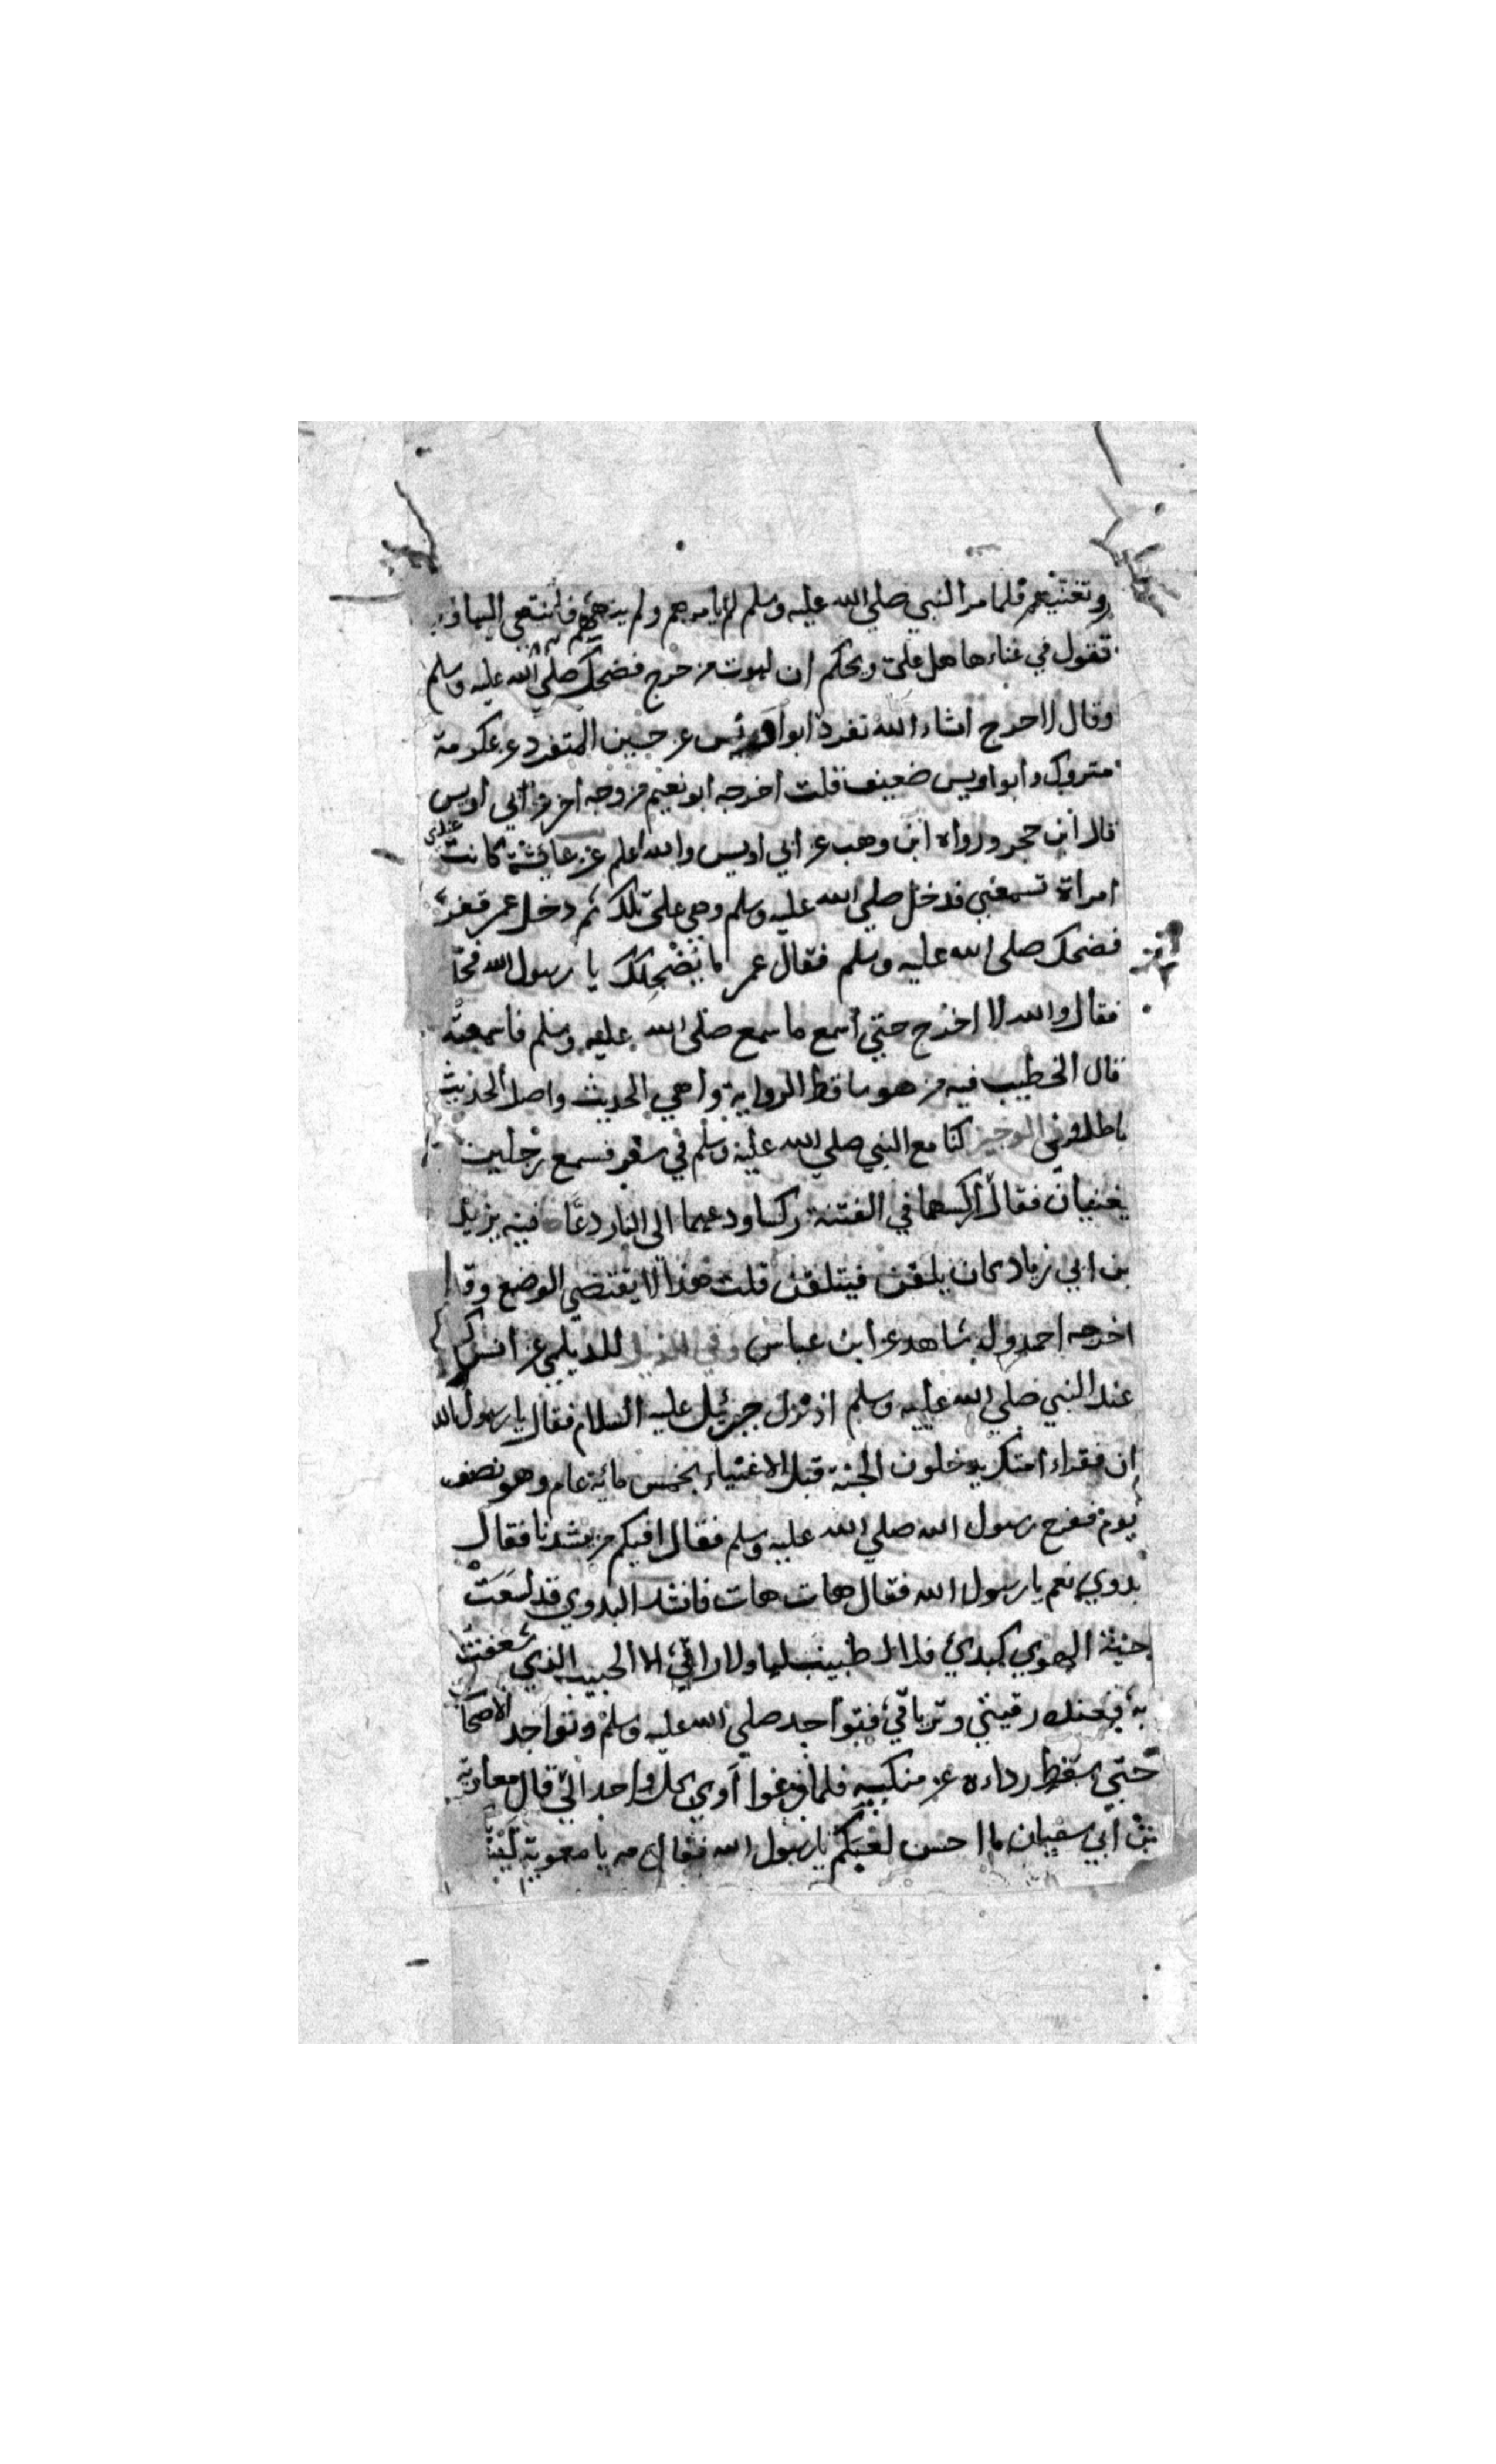 وتغنيهم فلما مر النبي صلى الله عليه وسلم لم يامرهم ولم ينههم فانتهى اليها و
تقول في غناءها هل علي ويحكم ان لهوت من حرج فضحك صلى الله عليه وسلم
وقال لا حرج انشاء الله تفرد ابو اويس عن حسين المتفرد عن عكرمة
متروك وابو اويس ضعيف قلت اخرجه ابو نعيم من وجه اخر عن ابي اويس
قال ابن حجر ورواه ابن وهب عن ابي اويس والله اعلم عن عائشة كانت عندي
امراة تسمعني فدخل صلى الله عليه وسلم وهي على تلك ثم دخل عمر ففرت
فضحك صلى الله عليه وسلم فقال عمر ما يضحكك يا رسول الله فحدثه
فقال والله لا اخرج حتى اسمع ما سمع صلى الله عليه وسلم فاسمعته
قال الخطيب فيه من هو ساقط الرواية واهي الحديث واصل الحديث
باطل وفي الوجيز كنا مع النبي صلى الله عليه وسلم في سفر فسمع رجلين
يغنيان فقال اركسهما في الفتنة ركسا ودعهما الى النار دعا فيه يزيد
بن ابي زياد كان يلقن فيتلقن قلت هذا لا يقتضي الوضع وقد
اخرجه احمد وله شاهد عن ابن عباس وفي الذيل للديلمي عن انس كنا
عند النبي صلى الله عليه وسلم اذ نزل جبرئيل عليه السلام فقال يا رسول الله
ان فقراء امتك يدخلون الجنة قبل الاغنياء بخمس مائة عام وهو نصف
يوم ففرح رسول الله صلى الله عليه وسلم فقال افيكم من ينشدنا فقال
بدوي نعم يا رسول الله فقال هات هات فانشد البدوي قد لسعت
حية الهوى كبدي فلا طبيب لها ولا راقي الا الحبيب الذي شغفت
به فعنده رقيتي وترياقي فتواجد صلى الله عليه وسلم وتواجد الاصحاب
حتى سقط رداءه عن منكبيه فلما فرغوا اوى كل واحد الى قال معاوية
بن ابي سفيان ما احسن لعبكم يا رسول الله فقال مه يا معوية ليس